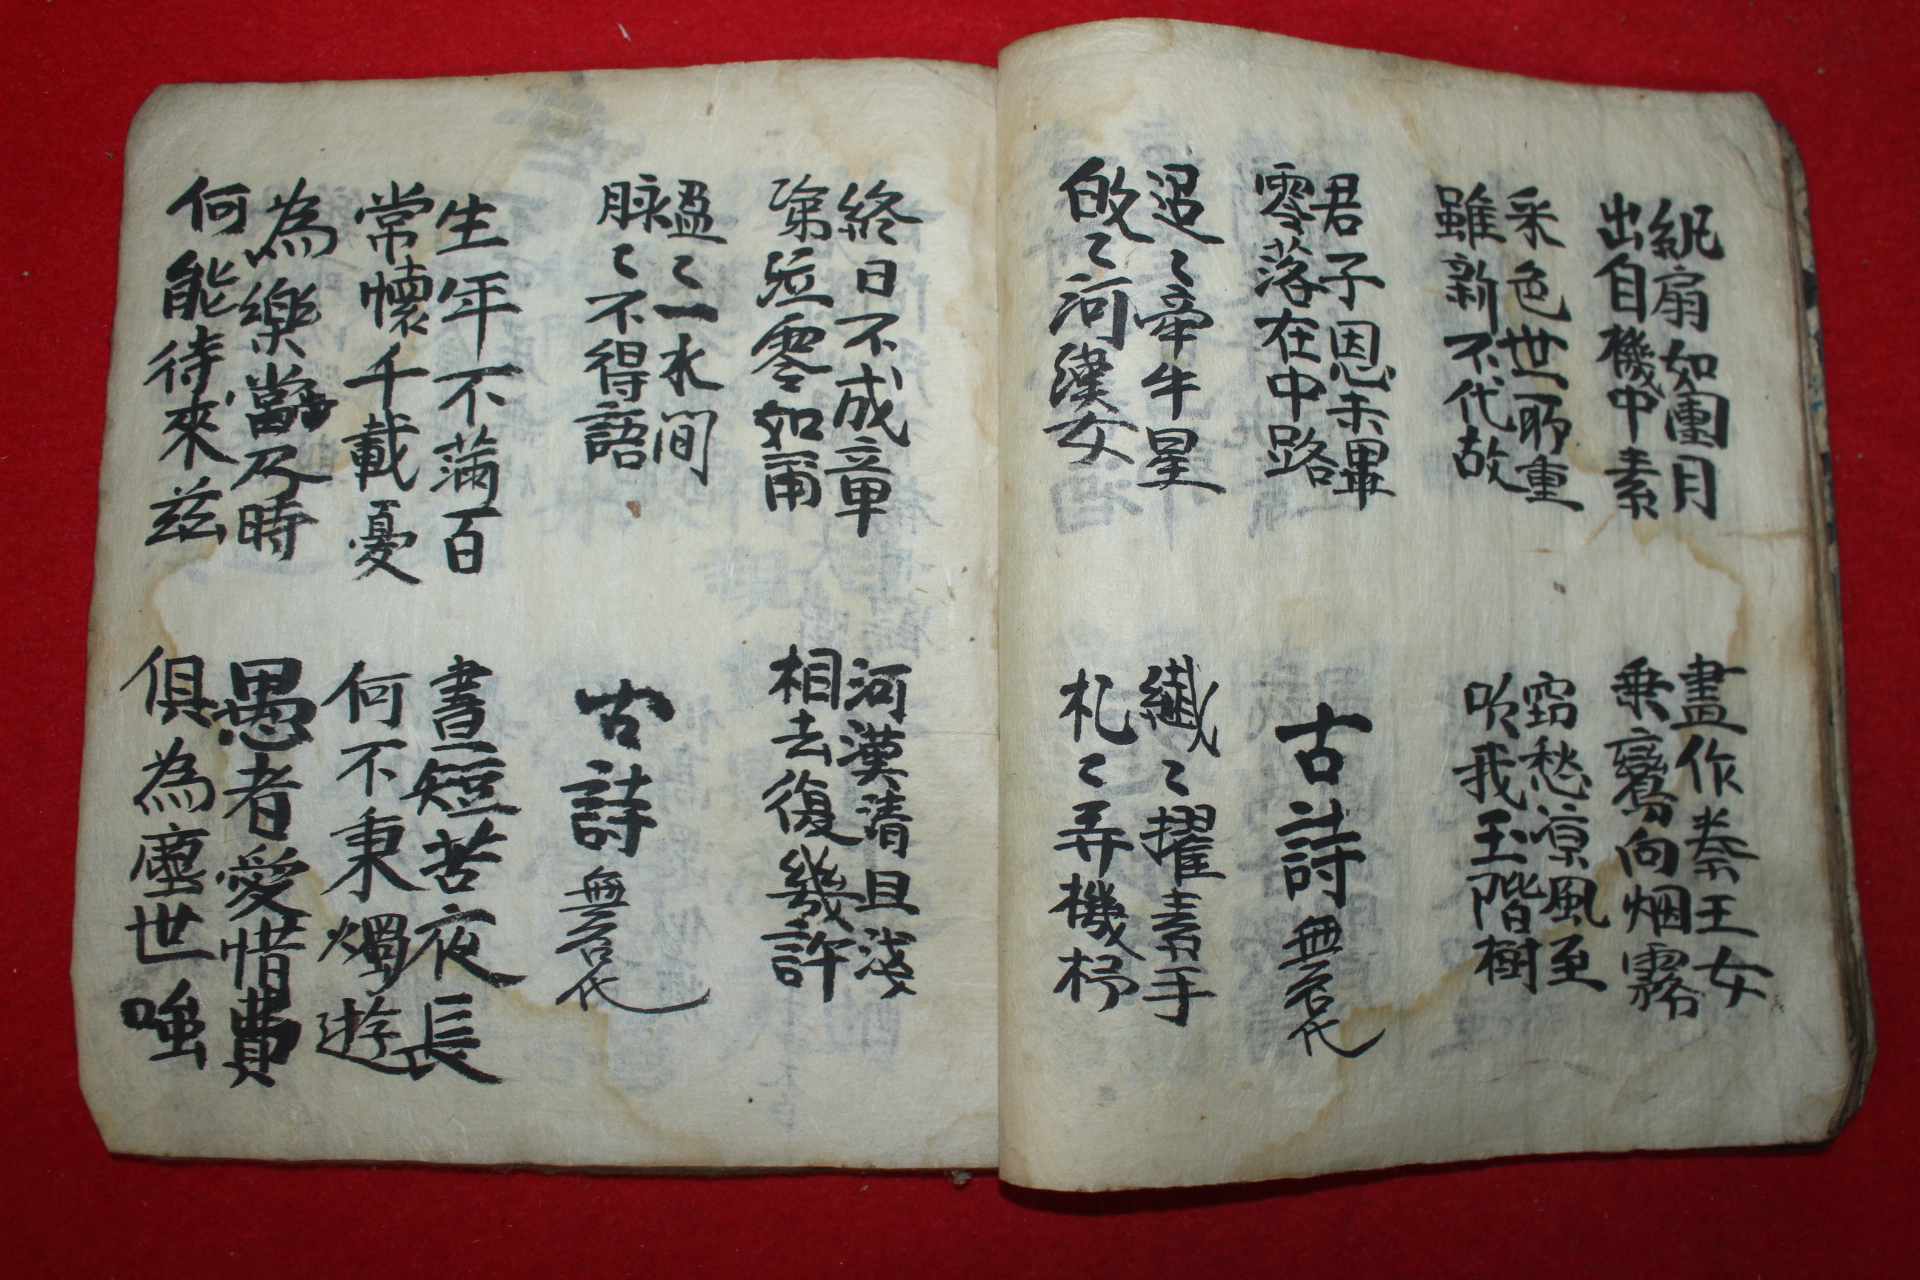 紈扇如團月
出自機中素
畫作秦王女
乗鸞向烟霧
采色世所重
雖新不代故
窃愁凉風至
吹我玉階樹
君子恩未畢
零落在中路
古詩 無名代
迢〻牽牛星
皎〻河漢女
纖〻擢素手
札〻弄機杼
終日不成章
第泣零如雨
河漢清且淺
相去復幾許
盈〻一水間
脉〻不得語
古詩 無名代
生年不滿百
常懷千載憂
晝短苦夜長
何不秉燭遊
為樂當及時
何能待來玆
愚者愛惜費
俱為塵世嗤